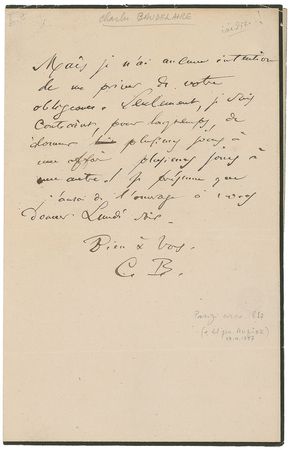 Charles BAUDELAIRE
Mais je n'ai aucune intention
de me priver de votre
obligeance. Seulement, je suis
contraint, pour longtemps, de
donner plusieurs jours à
une affaire, plusieurs jours à
une autre. Je présume que
j'aurai de l'ouvrage à vous
donner Lundi soir.
Bien à Vous.
C. B.